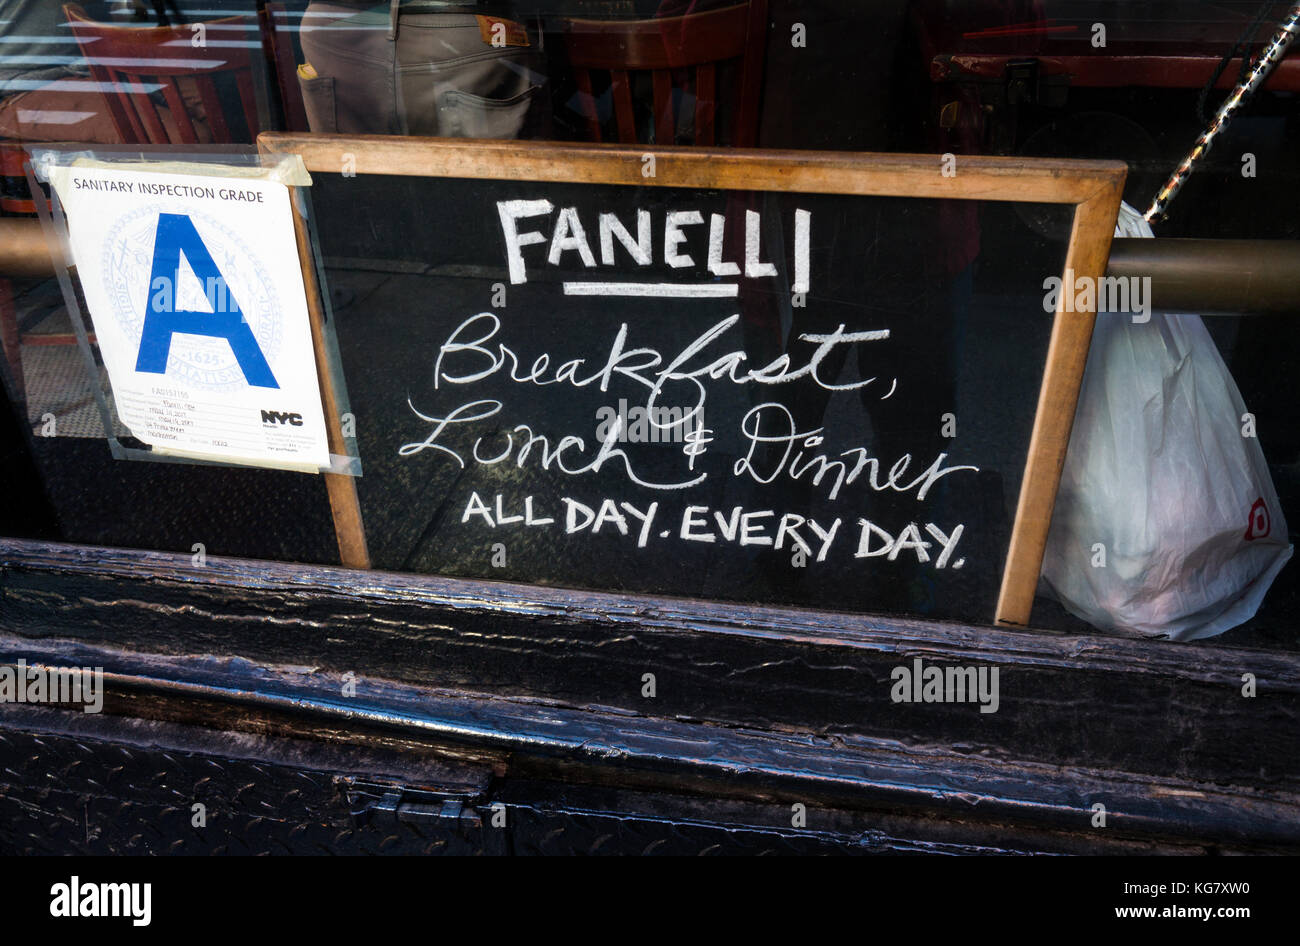 SANITARY INSPECTION GRADE
A
1625
NYC
Health
FANELLI
Breakfast,
Lunch & Dinner
ALL DAY. EVERY DAY.
alamy
alamy
Image ID: KG7XW0
www.alamy.com